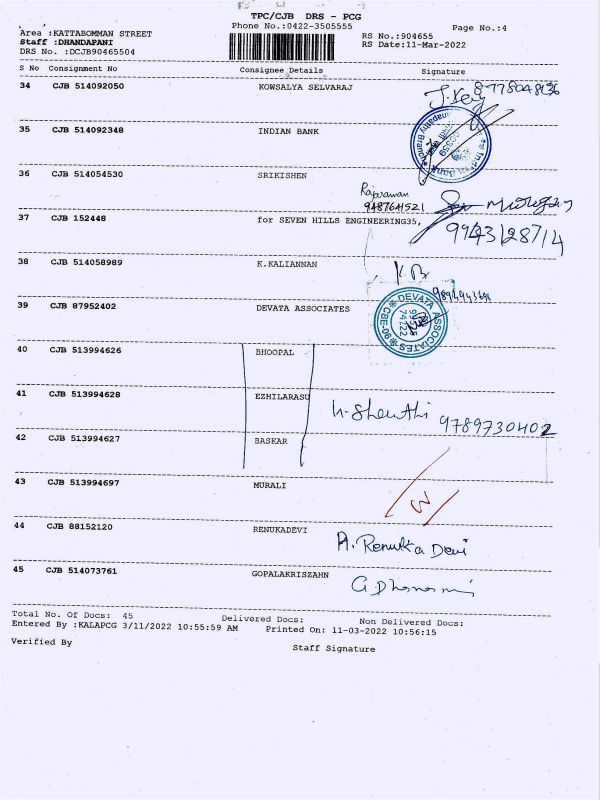 TPC/CJB DRS - PCG
Phone No.:0422-3505555
Page No.:4
Area :KATTABOMMAN STREET
Staff :DHANDAPANI
DRS No. :DCJB90465504
RS No.:904655
RS Date:11-Mar-2022
S No Consignment No Consignee Details Signature
34 CJB 514092050 KOWSALYA SELVARAJ
35 CJB 514092348 INDIAN BANK
36 CJB 514054530 SRIKISHEN
9487641521
37 CJB 152448 for SEVEN HILLS ENGINEERING35,
38 CJB 514058989 K.KALIANNAN
39 CJB 87952402 DEVATA ASSOCIATES
DEVATA ASSOCIATES
40 CJB 513994626 BHOOPAL
41 CJB 513994628 EZHILARASU
9789730402
42 CJB 513994627 BASKAR
43 CJB 513994697 MURALI
44 CJB 88152120 RENUKADEVI
A. Renuka Devi
45 CJB 514073761 GOPALAKRISZAHN
Total No. Of Docs: 45 Delivered Docs: Non Delivered Docs:
Entered By :KALAPCG 3/11/2022 10:55:59 AM Printed On: 11-03-2022 10:56:15
Verified By Staff Signature